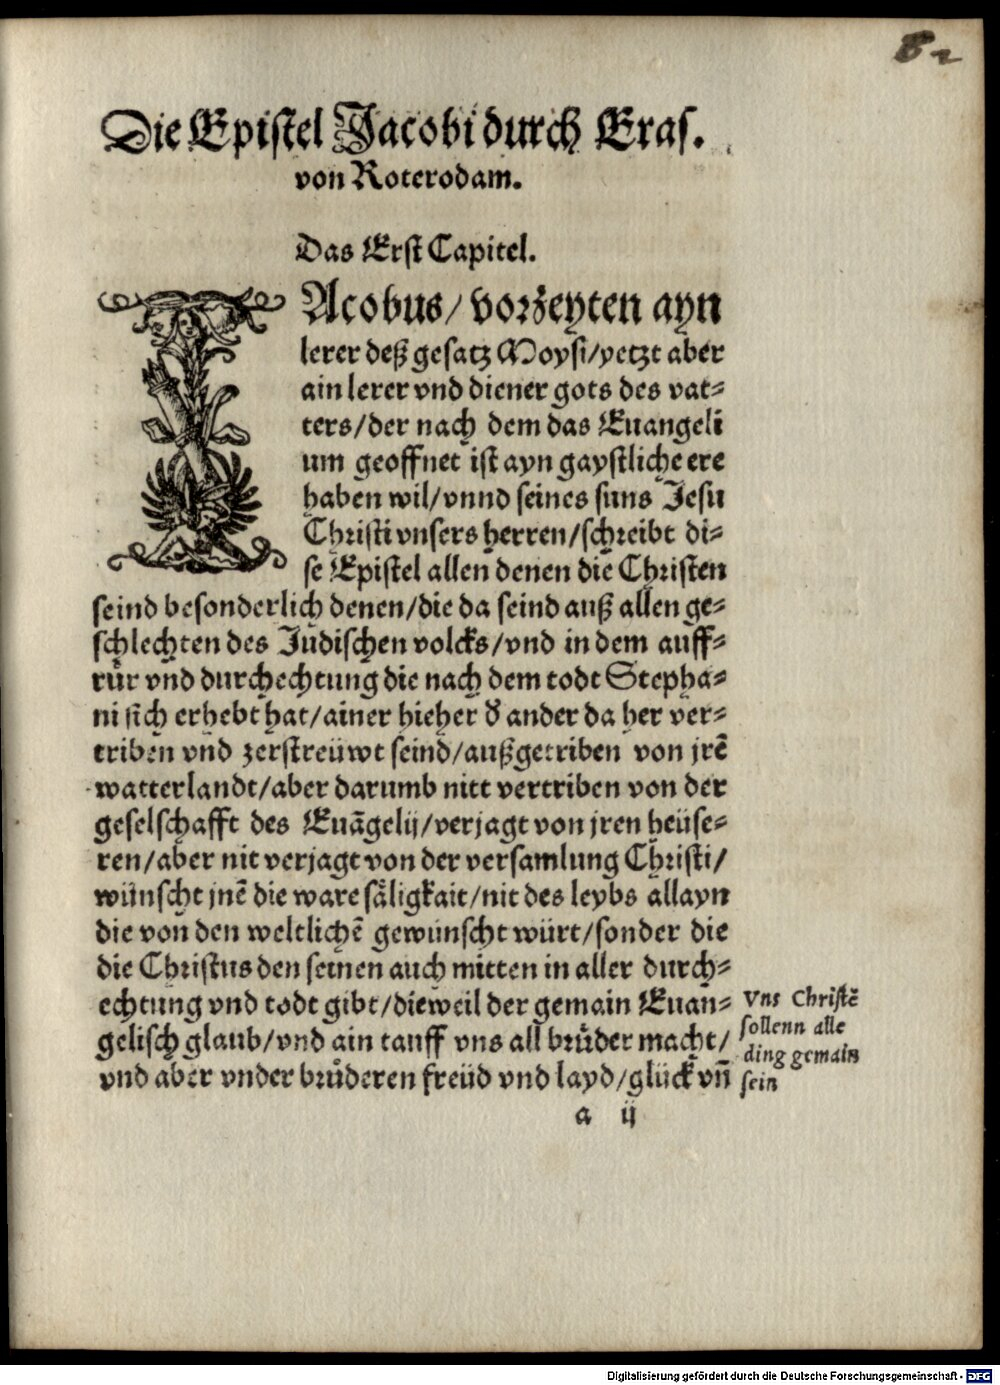 82
Die Epistel Jacobi durch Eras.
von Roterodam.
Das Erst Capitel.
IAcobus/ vorzeyten ayn
lerer deß gesatz Moysi/yetzt aber
ain lerer vnd diener gots des vat⸗
ters/der nach dem das Euangeli
um geoffnet ist ayn gaystliche ere
haben wil/vnnd seines suns Jesu
Christi vnsers herren/schreibt di⸗
se Epistel allen denen die Christen
seind besonderlich denen/die da seind auß allen ge⸗
schlechten des Jüdischen volcks/vnd in dem auff⸗
růr vnd durchechtung die nach dem todt Stepha⸗
ni sich erhebt hat/ainer hieher d̕ ander da her ver⸗
triben vnd zerstreüwt seind/außgetriben von jrē
watterlandt/aber darumb nitt vertriben von der
geselschafft des Euāgelij/verjagt von jren heüse⸗
ren/aber nit verjagt von der versamlung Christi/
wünscht jnē die ware säligkait/nit des leybs allayn
die von den weltlichē gewünscht würt/sonder die
die Christus den seinen auch mitten in aller durch⸗
echtung vnd todt gibt/dieweil der gemain Euan⸗
gelisch glaub/vnd ain tauff vns all brůder macht/
vnd aber vnder brůderen freüd vnd layd/glück vn̄
Vns Christē
sollenn alle
ding gemain
sein
a ij
Digitalisierung gefördert durch die Deutsche Forschungsgemeinschaft - DFG